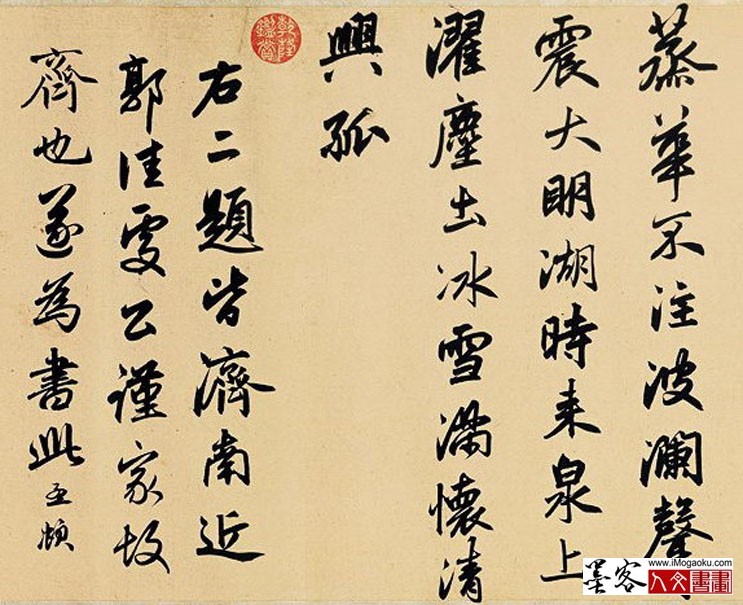 蒸華不注波瀾聲
震大明湖時来泉上
濯塵土冰雪滿懷清
興孤
乾隆鑑賞
右二題皆濟南近
郭佳處公謹家故
齊也遂為書此孟頫
墨客
www.iMogaoku.com
人文書畫